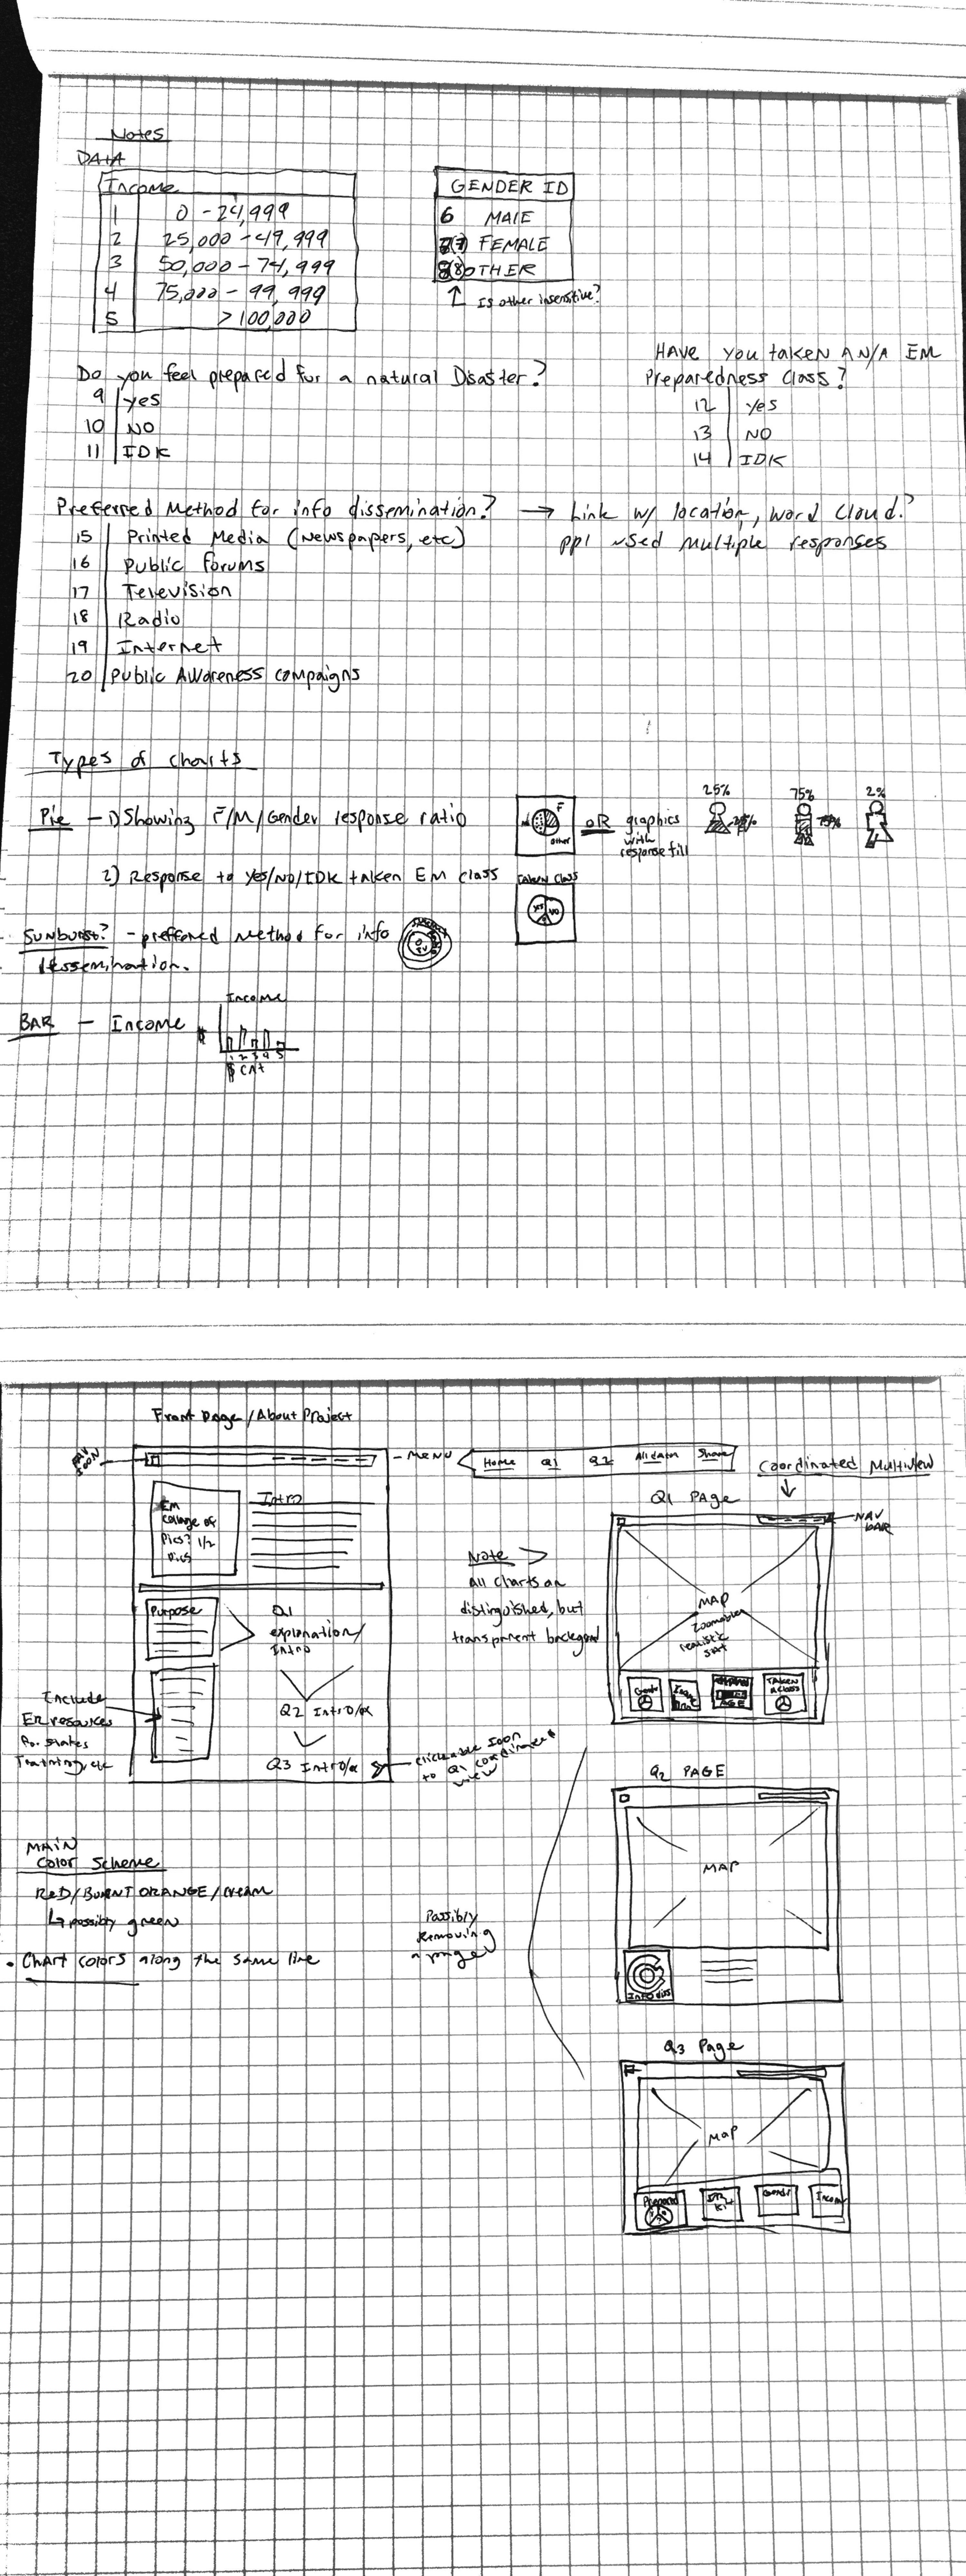 Notes
DATA
Income
1 0 - 24,999
2 25,000 - 49,999
3 50,000 - 74,999
4 75,000 - 99,999
5 > 100,000
GENDER ID
6 MALE
(7) FEMALE
(8) OTHER
↑ Is other insensitive?
Do you feel prepared for a natural Disaster?
9 yes
10 NO
11 IDK
HAVE you taken AN/A EM
Preparedness Class?
12 yes
13 NO
14 IDK
Preferred Method for info dissemination? → Link w/ location, word cloud?
ppl used multiple responses
15 Printed Media (Newspapers, etc)
16 Public forums
17 Television
18 Radio
19 Internet
20 Public Awareness campaigns
Types of charts
Pie - 1) Showing F/M/Gender response ratio
F
M
other
OR graphics
with
response fill
25%
75%
2%
2) Response to yes/NO/IDK taken EM class
TAKEN CLASS
YES NO
Sunburst? - preffered method for info
dessemination.
TV
BAR - Income
Income
1 2 3 4 5
$ CAT
Front Page / About Project
FAV ICON
- MENU
Home Q1 Q2 All data Share
Coordinated Multiview
EM
Collage of
Pics? 1/2
Pics
Intro
Purpose
Q1
explanation/
Intro
Q2 Intro/ex
Q3 Intro/ex
Include
ER resources
for states
Training, etc
clickable Icon
to Q1 coordinated
view
Note >
All charts on
distinguished, but
transparent background
Q1 PAGE
NAV
BAR
MAP
Zoomable
realistic
sat
Gender
AGE
TAKEN
A Class
Q2 PAGE
MAP
INFO DIS
MAIN
Color Scheme
RED/BURNT ORANGE/CREAM
↳ possibly green
• Chart colors along the same line
Possibly
Removing
a page
Q3 Page
MAP
Prepared
Kit
Gender
Income